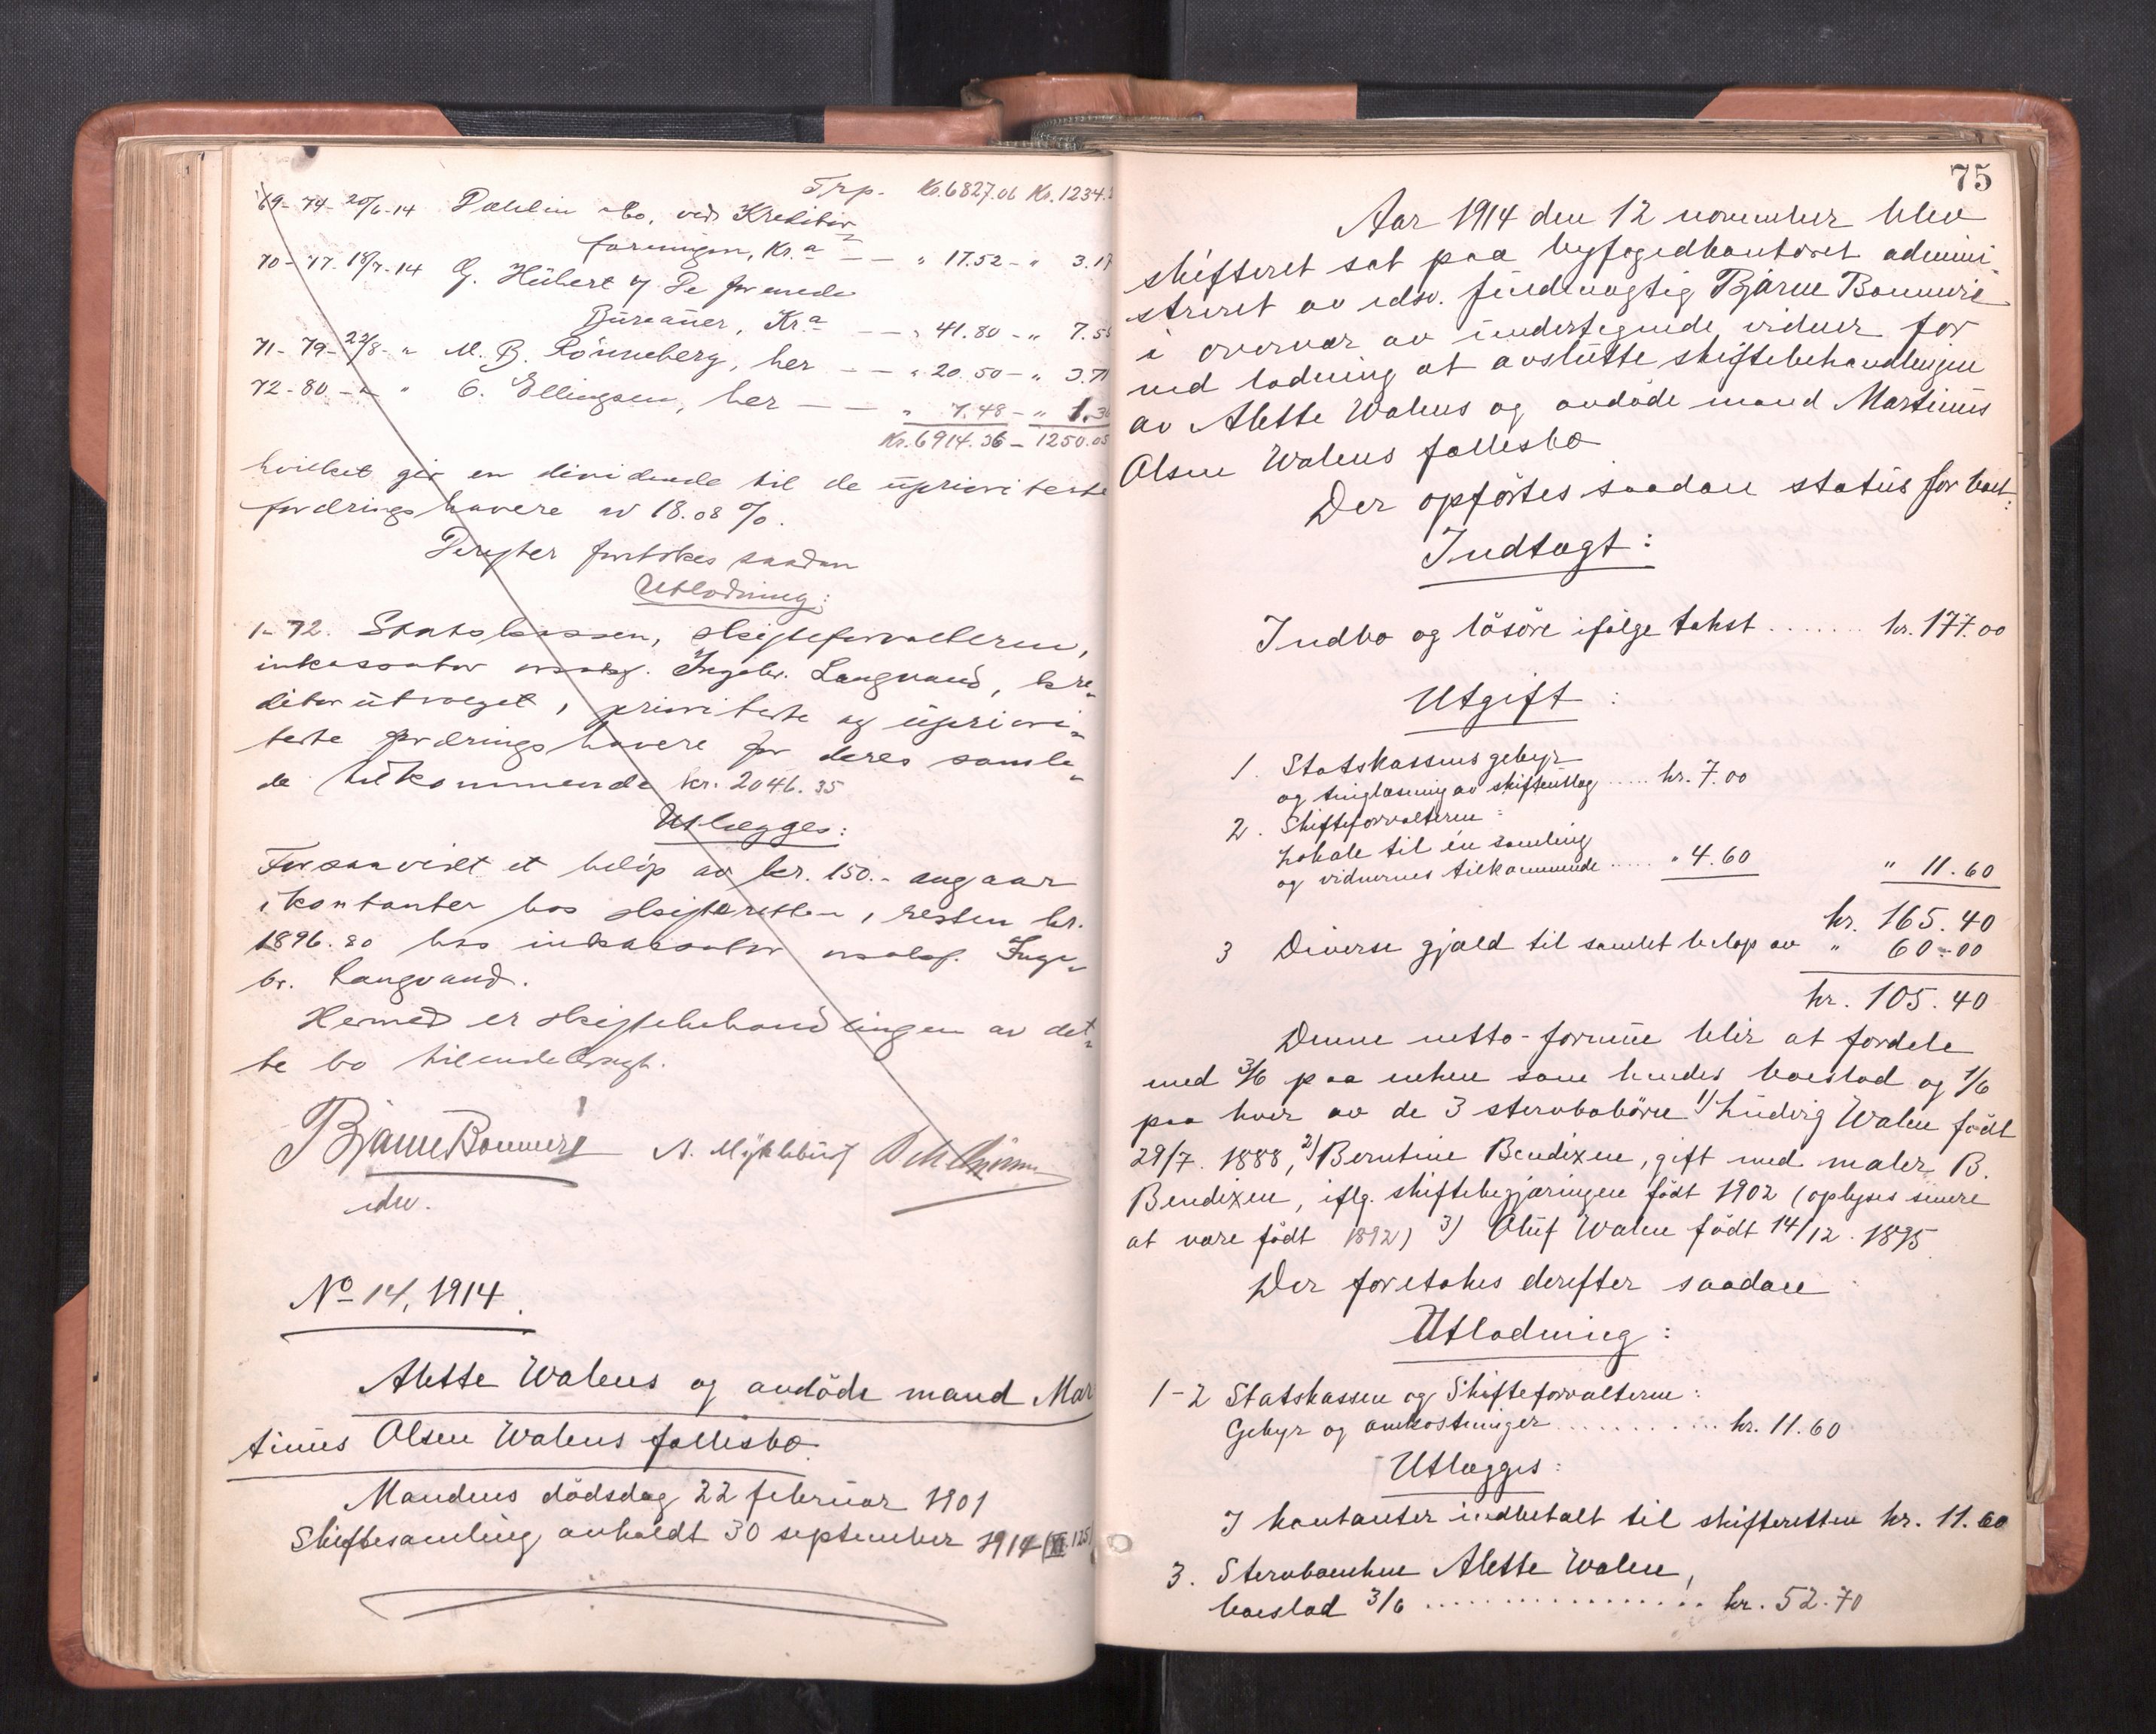 Trp. Kr. 6827.06 Kr. 1234.
69- 74- 20/6-14 Dahlin &co, ved Kreditor
foreningen, Kr.a — — " 17.52 - " 3.17
70- 77- 18/7-14 G. Hübert & De forenede
Büreauer, Kr.a — — " 41.80 - " 7.55
71- 79- 22/8- " M. B. Rönneberg, her — — " 20.50 - " 3.71
72- 80- " " C. Ellingsen, her — — " 7.48 - " 1.36
Kr. 6914.36 - 1250.05
hvilket gir en dividende til de üprioriterte
fordringshavere av 18.08 %.
Derefter foretokes saadan
Utlodning:
1-72. Statskassen, skifteforvalteren,
inkassator Ingebr. Langvand, kre-
ditorütvalget, prioriterte og üpriori-
terte fordringshavere for deres samle-
de tilkommende kr. 2046.35
Utlægges:
Forsaavidt et beløp av kr. 150.- angaar
i kontanter hos skifteretten, resten kr.
1896.30 hos inkassator Inge-
br. Langvand.
Hermed er skiftebehandlingen av det-
te bo tilendebragt.
Bjarne Bonnevie A. Myklebüst
edsv.
No 14, 1914.
Alette Walens og avdöde mand Mar
tinüs Olsen Walens fællesbo.
Mandens dödsdag 22 februar 1901
Skiftesamling anholdt 30 september 1914 (XI. 125)
75
Aar 1914 den 12 november blev
skifteret sat paa byfogedkontoret admini-
streret av edsv. füldmægtig Bjarne Bonnevie
i overvær av ündertegnede vidner for
ved lodning at avslütte skiftebehandlingen
av Alette Walens og avdöde mand Martinüs
Olsen Walens fællesbo
Der opførtes saadan statüs for boet:
Indtægt:
Indbo og lösöre ifölge takst ....... kr. 177.00
Utgift:
1. Statskassens gebyr
og tinglæsning av skifteutlæg ..... kr. 7.00
2. Skifteforvalteren:
Lokale til én samling
og vidnernes tilkommende ..... " 4.60 " 11.60
kr. 165.40
3 Diverse gjæld til samlet beløp av " 60.00
kr. 105.40
Denne netto-formüe blir at fordele
med 3/6 paa enken som hendes boeslod og 1/6
paa hver av de 3 stervbobörn 1) Lüdvig Walen födt
29/7. 1888, 2) Berntine Bendixen, gift med maler B.
Bendixen, iflg. skiftebegjæringen födt 1902 (oplyses senere
at være födt 1892) 3) Olüf Walen födt 14/12. 1895
Der foretokes derefter saadan
Utlodning:
1-2 Statskassen og Skifteforvalteren:
Gebyr og omkostninger .......... kr. 11.60
Utlægges:
I kontanter indbetalt til skifteretten kr. 11.60
3. Stervboenken Alette Walen,
boeslod 3/6 ................ kr. 52.70